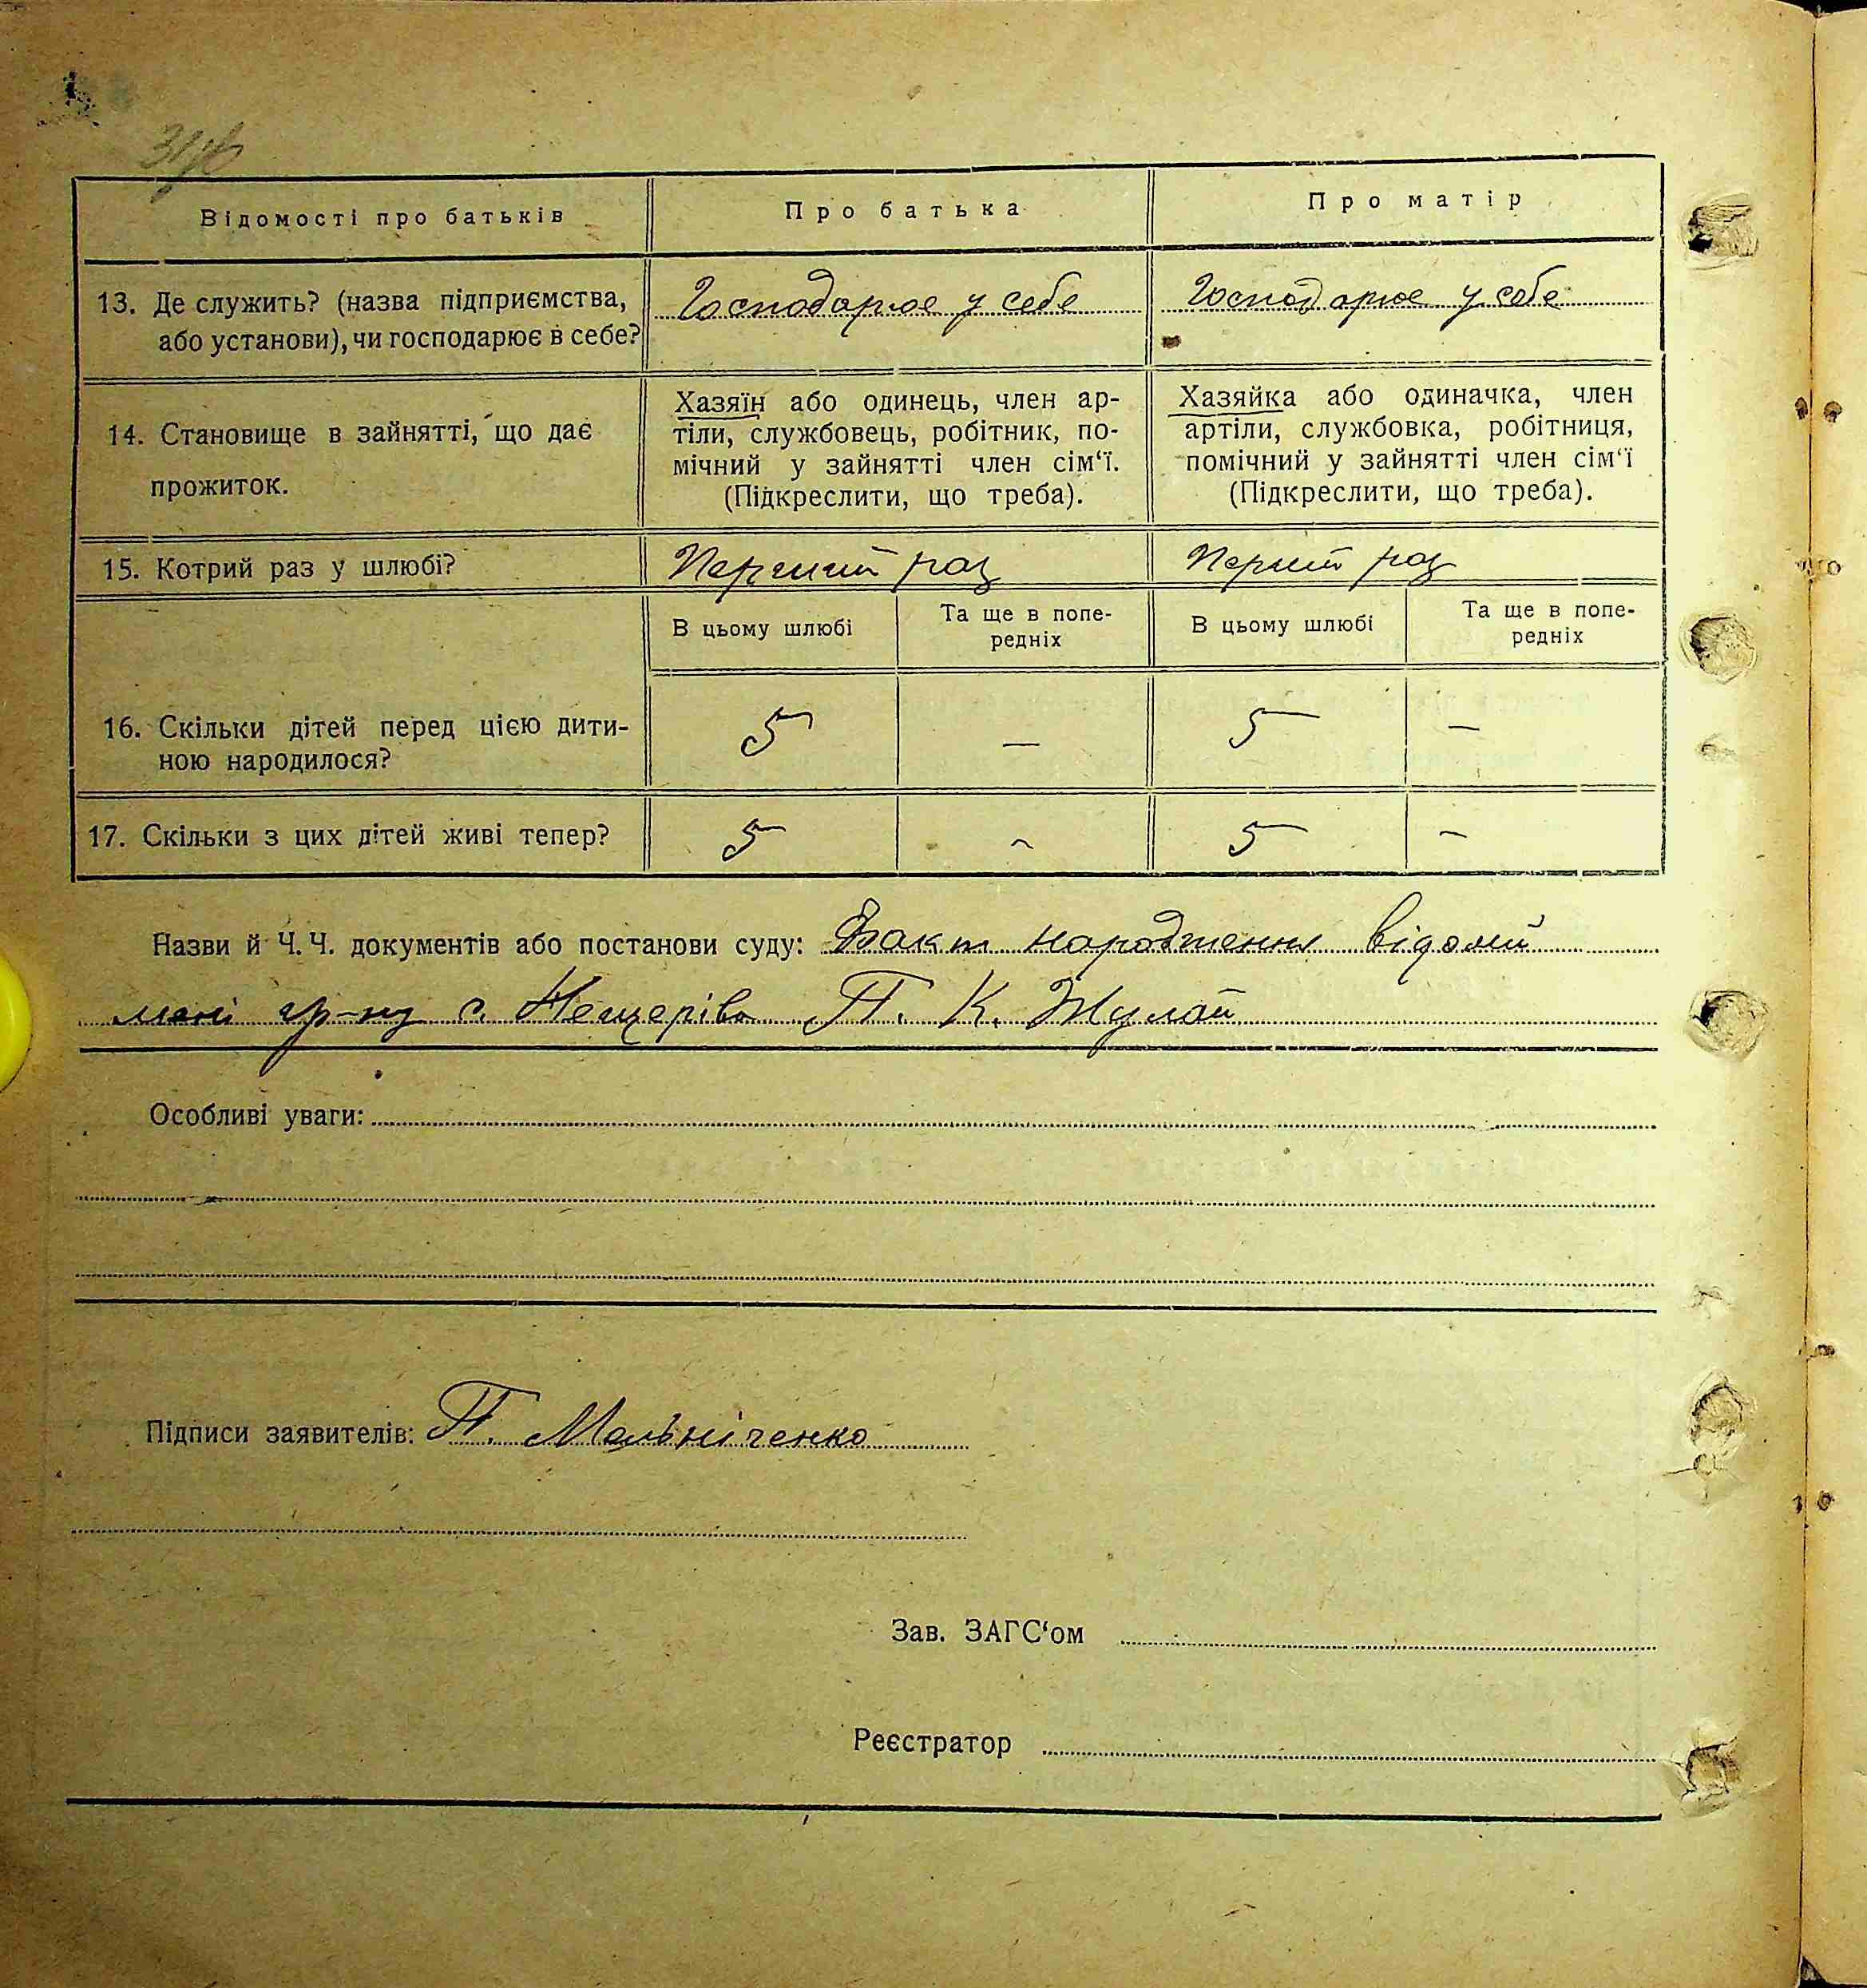 Відомості про батьків
Про батька
Про матір
13. Де служить? (назва підприємства, або установи), чи господарює в себе?
Господарює у себе
Господарює у себе
14. Становище в зайнятті, що дає прожиток.
Хазяїн або одинець, член ар-
тіли, службовець, робітник, по-
мічний у зайнятті член сім‘ї.
(Підкреслити, що треба).
Хазяйка або одиначка, член
артіли, службовка, робітниця,
помічний у зайнятті член сім‘ї
(Підкреслити, що треба).
15. Котрий раз у шлюбі?
Перший раз
Перший раз
В цьому шлюбі
Та ще в попе-
редніх
В цьому шлюбі
Та ще в попе-
редніх
16. Скільки дітей перед цією дити-
ною народилося?
5
—
5
—
17. Скільки з цих дітей живі тепер?
5
—
5
—
Назви й Ч.Ч. документів або постанови суду: Факт народження відомий
мені гр-ну с. Нещерів П. К. Жулай
Особливі уваги:
Підписи заявителів: П. Мельніченко
Зав. ЗАГС‘ом
Реєстратор